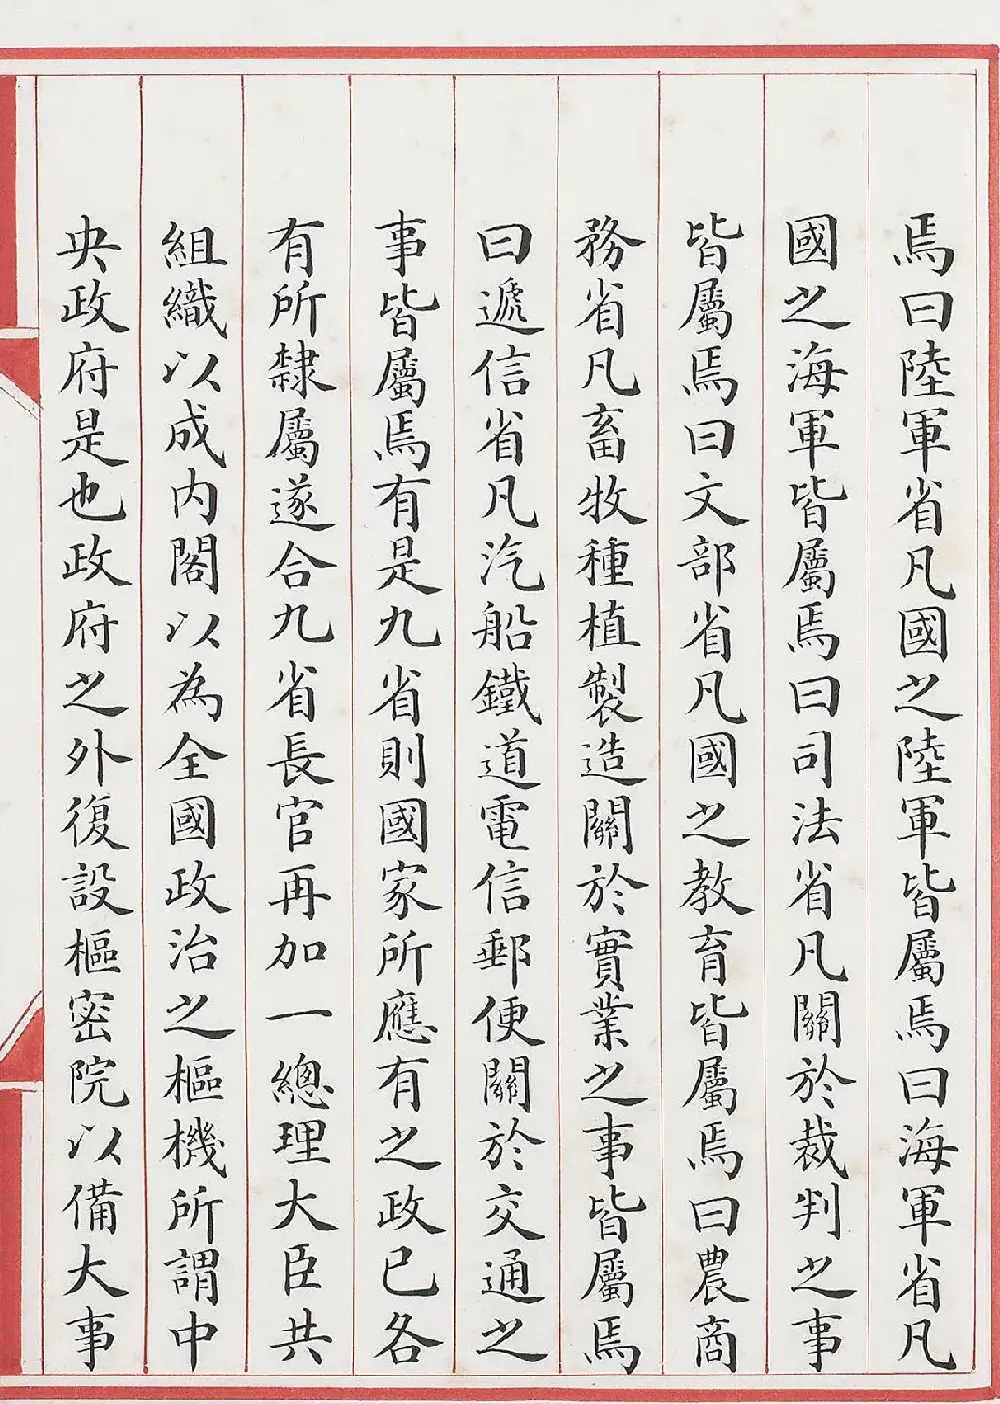 焉曰陸軍省凡國之陸軍皆屬焉曰海軍省凡
國之海軍皆屬焉曰司法省凡關於裁判之事
皆屬焉曰文部省凡國之教育皆屬焉曰農商
務省凡畜牧種植製造關於實業之事皆屬焉
曰遞信省凡汽船鐵道電信郵便關於交通之
事皆屬焉有是九省則國家所應有之政已各
有所隸屬遂合九省長官再加一總理大臣共
組織以成内閣以為全國政治之樞機所謂中
央政府是也政府之外復設樞密院以備大事